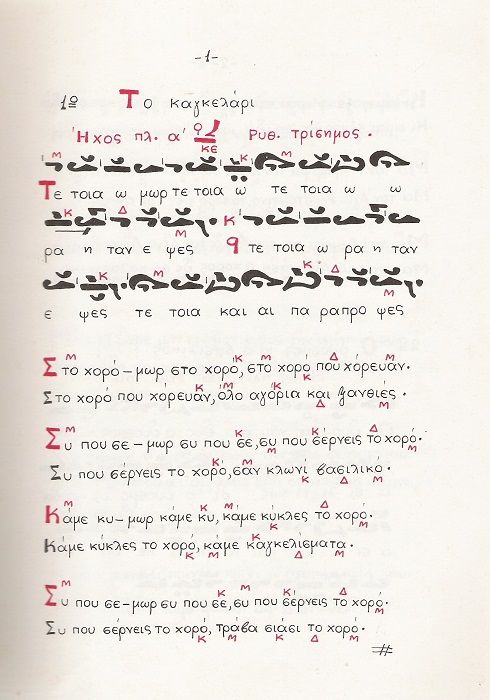 -1-
1ο Το καγκελάρι
Ήχος πλ. α' κε Ρυθ. τρίσημος.
Τε τοια ω μωρ τε τοια ω τε τοια ω ω
ρα η ταν ε ψες τε τοια ω ρα η ταν
ε ψες τε τοια και αι πα ραπρο ψες
Στο χορό-μωρ στο χορό, στο χορό που χόρευαν.
Στο χορό που χόρευαν, όλο αγόρια και ξανθιές.
Συ που σε-μωρ συ που σε, συ που σέρνεις το χορό.
Συ που σέρνεις το χορό, σαν κλωνί βασιλικό.
Κάμε κυ-μωρ κάμε κυ, κάμε κύκλες το χορό.
Κάμε κύκλες το χορό, κάμε καγκελίσματα.
Συ που σε-μωρ συ που σε, συ που σέρνεις το χορό.
Συ που σέρνεις το χορό, τράβα σιάσι το χορό.